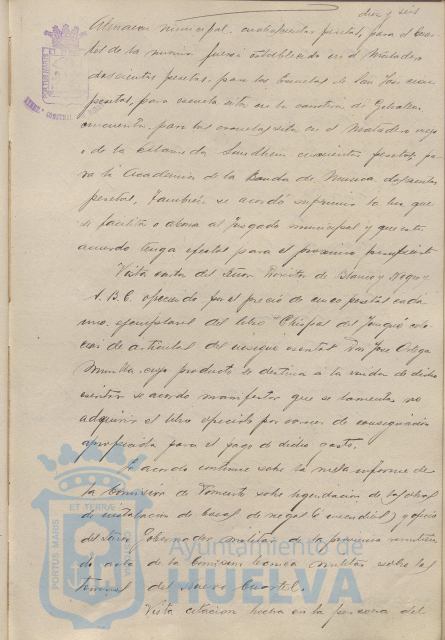 diez y seis
Almacen municipal, cuatrocientas pesetas, para el Cuar-
tel de la misma fuerza establecido en el Matadero
doscientas pesetas, para las Escuelas de San José cien
pesetas, para escuela sita en la carretera de Gibraleon
cincuenta, para las escuelas sita en el Matadero viejo
de la Alameda Sundheim cincuenta pesetas, pa-
ra la Academia de la Banda de Musica doscientas
pesetas. Tambien se acordó suprimir la luz que
se facilita o abona al Juzgado municipal y que este
acuerdo tenga efectos para el proximo presupuesto
Vista carta del Señor Director de Blanco y Negro y
A.B.C. ofreciendo por el precio de cinco pesetas cada
uno, ejemplares del libro "Chispas del Yunque" colec-
cion de articulos del insigne escritor Don José Ortega
Munilla, cuyo producto se destina a la viuda de dicho
escritor se acordo manifestar que se lamenta no
adquirir el libro ofrecido por carecer de consignacion
apropiada para el pago de dicho gasto.
Se acordo continue sobre la mesa informe de
la Comision de Fomento sobre liquidacion de las obras
de instalacion de bocas de riegos e incendios y oficio
del Señor Gobernador militar de la provincia remitien-
do acta de la Comision tecnica militar sobre los
terrenos del nuevo Cuartel.
Vista citacion hecha en la persona del
PORTUS MARIS ET TERRÆ
Ayuntamiento de
HUELVA